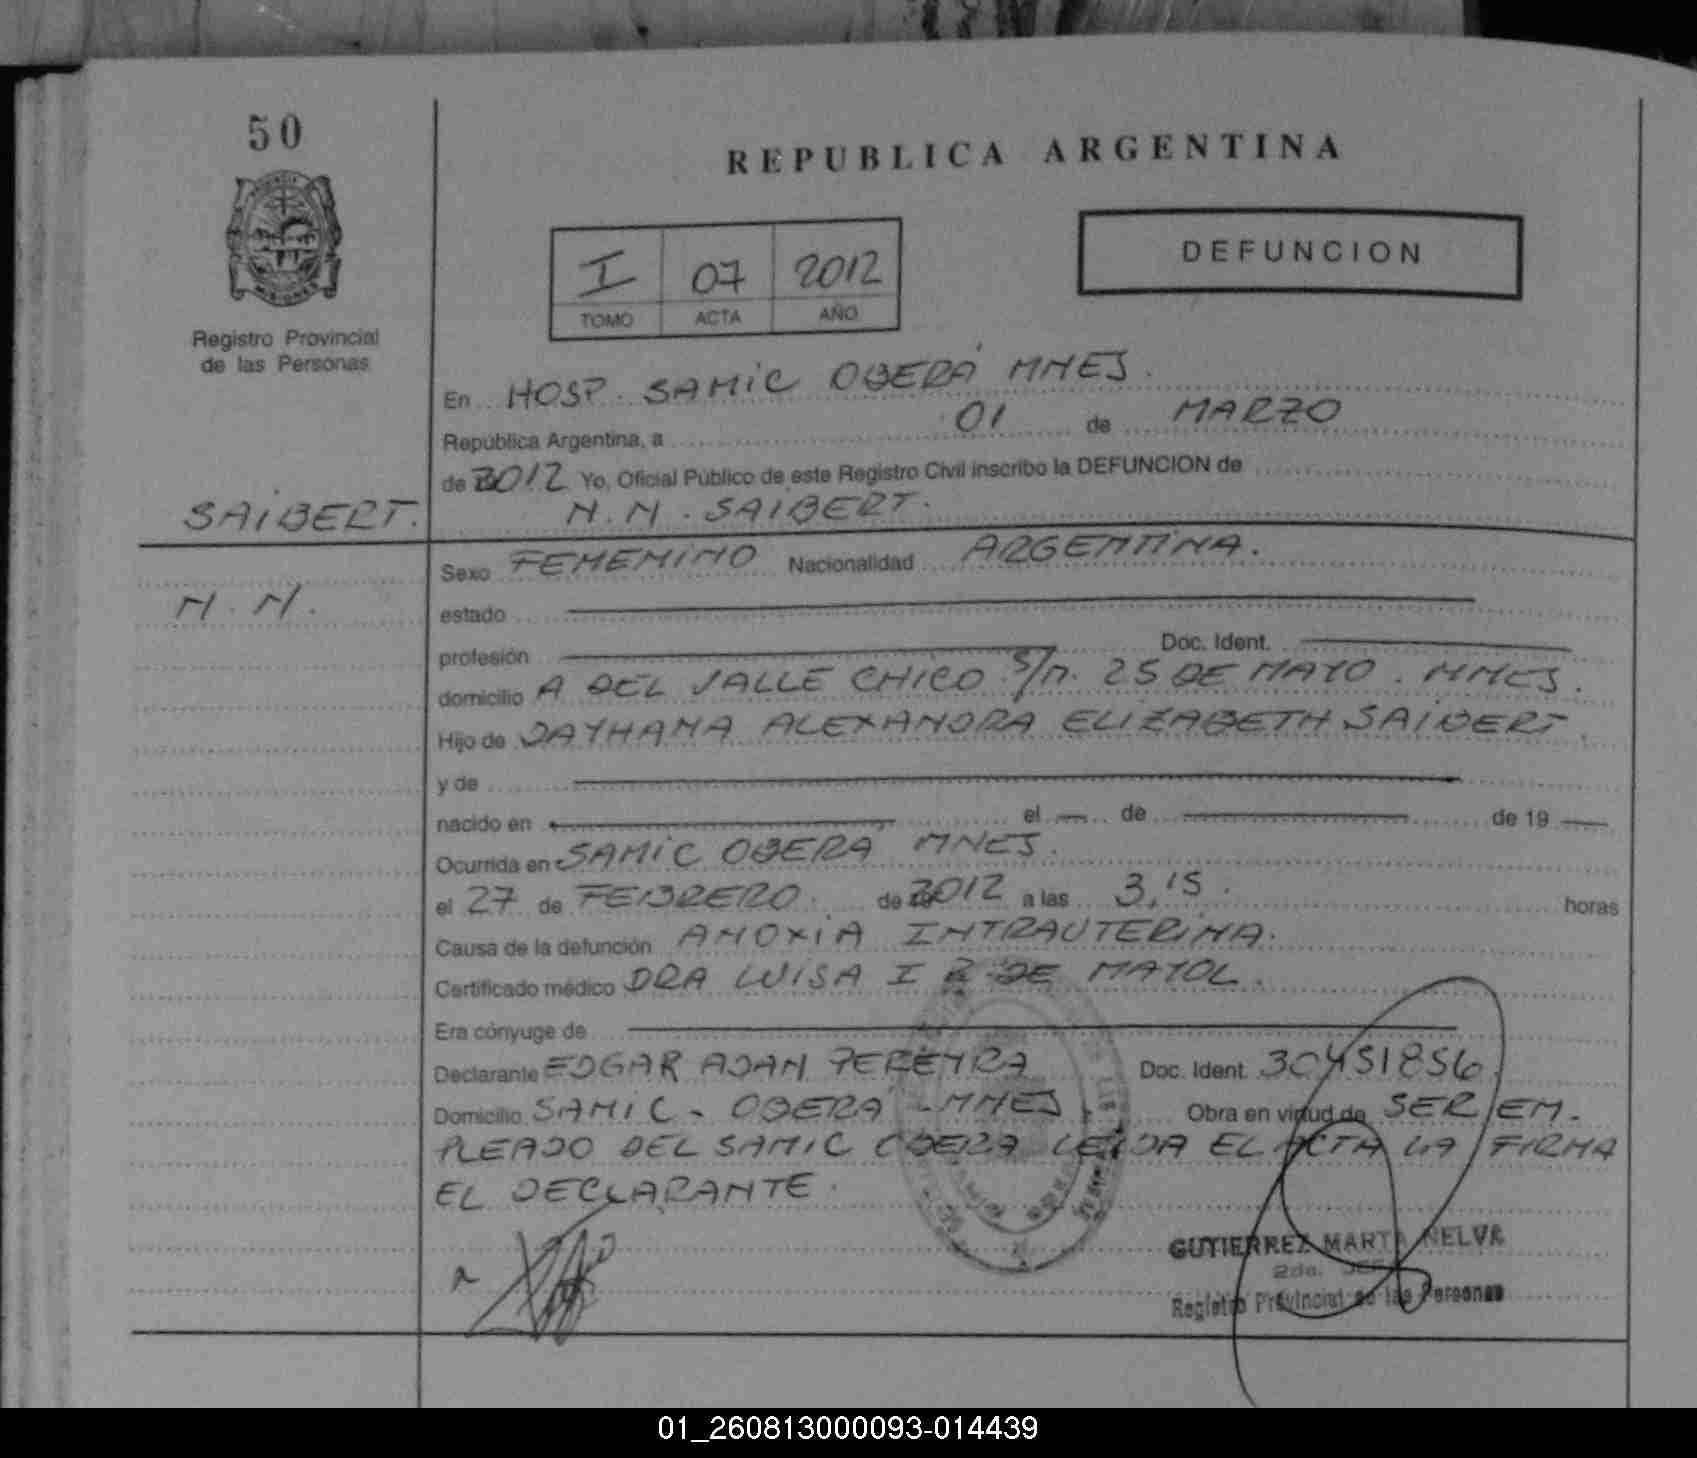 50
REPUBLICA ARGENTINA
DEFUNCION
I 07 2012
TOMO ACTA AÑO
Registro Provincial
de las Personas
En HOSP. SAMIC OBERÁ MNES.
República Argentina, a 01 de MARZO
de 2012 Yo, Oficial Público de este Registro Civil inscribo la DEFUNCION de
SAIBERT. N.N. SAIBERT.
Sexo FEMENINO Nacionalidad ARGENTINA.
N.N.
estado
profesión Doc. Ident.
domicilio A DEL VALLE CHICO S/N. 25 DE MAYO. MNES.
Hijo de DAYHANA ALEXANDRA ELIZABETH SAIBERT
y de
nacido en el de de 19
Ocurrida en SAMIC OBERA MNES.
el 27 de FEBRERO. de 2012 a las 3,15. horas
Causa de la defunción ANOXIA INTRAUTERINA.
Certificado médico DRA LUISA I R DE MAYOL.
Era cónyuge de
Declarante EDGAR ADAN PEREYRA Doc. Ident. 30451856
Domicilio SAMIC - OBERA - MNES. Obra en virtud de SER EM-
PLEADO DEL SAMIC OBERA LEIDA EL ACTA LA FIRMA
EL DECLARANTE.
GUTIERREZ MARTA NELVA
2da.
Registro Provincial de las Personas
01_260813000093-014439